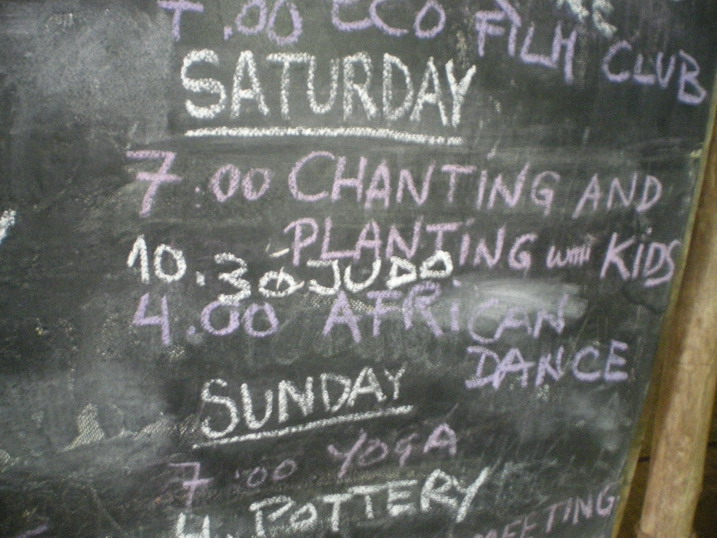 7.00 ECO FILM CLUB
SATURDAY
7.00 CHANTING AND
PLANTING with KIDS
10.30 JUDO
4.00 AFRICAN
DANCE
SUNDAY
7.00 YOGA
4. POTTERY
MEETING